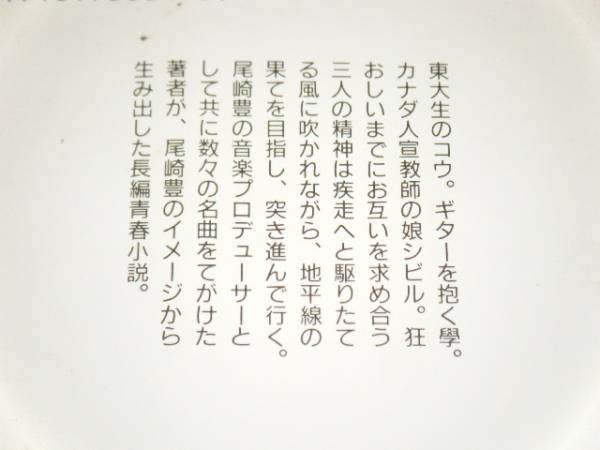 東大生のコウ。ギターを抱く學。
カナダ人宣教師の娘シビル。狂
おしいまでにお互いを求め合う
三人の精神は疾走へと駆りたて
る風に吹かれながら、地平線の
果てを目指し、突き進んで行く。
尾崎豊の音楽プロデューサーと
して共に数々の名曲をてがけた
著者が、尾崎豊のイメージから
生み出した長編青春小説。